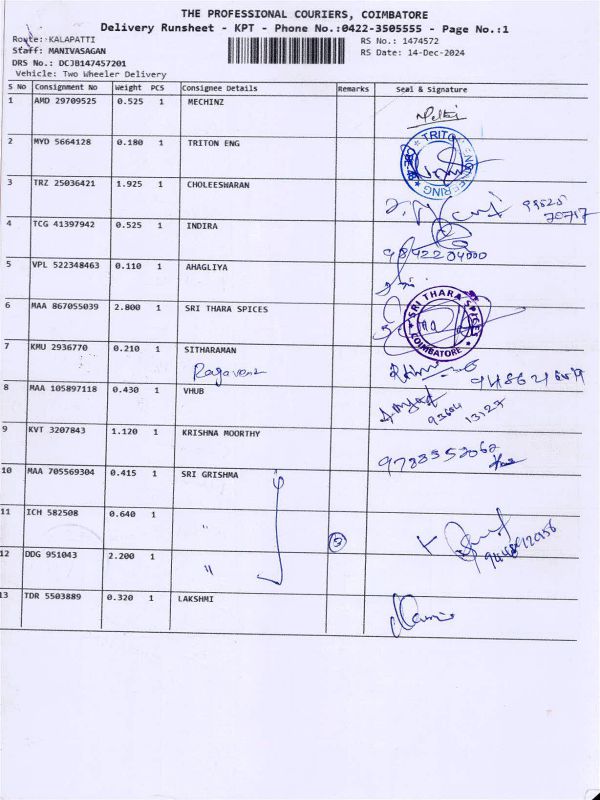 THE PROFESSIONAL COURIERS, COIMBATORE
Delivery Runsheet - KPT - Phone No.:0422-3505555 - Page No.:1
Route: KALAPATTI
RS No.: 1474572
Staff: MANIVASAGAN
RS Date: 14-Dec-2024
DRS No.: DCJB147457201
Vehicle: Two Wheeler Delivery
S No Consignment No Weight PCS Consignee Details Remarks Seal & Signature
1 AMD 29709525 0.525 1 MECHINZ
2 MYD 5664128 0.180 1 TRITON ENG
TRITON ENGINEERING
3 TRZ 25036421 1.925 1 CHOLEESWARAN
4 TCG 41397942 0.525 1 INDIRA
9842204000
5 VPL 522348463 0.110 1 AHAGLIYA
6 MAA 867055039 2.800 1 SRI THARA SPICES
SRI THARA SPICES COIMBATORE
7 KMU 2936770 0.210 1 SITHARAMAN
8 MAA 105897118 0.430 1 VHUB
93604 13127
9 KVT 3207843 1.120 1 KRISHNA MOORTHY
10 MAA 705569304 0.415 1 SRI GRISHMA
11 ICH 582508 0.640 1 "
5
12 DDG 951043 2.200 1 "
13 TDR 5503889 0.320 1 LAKSHMI